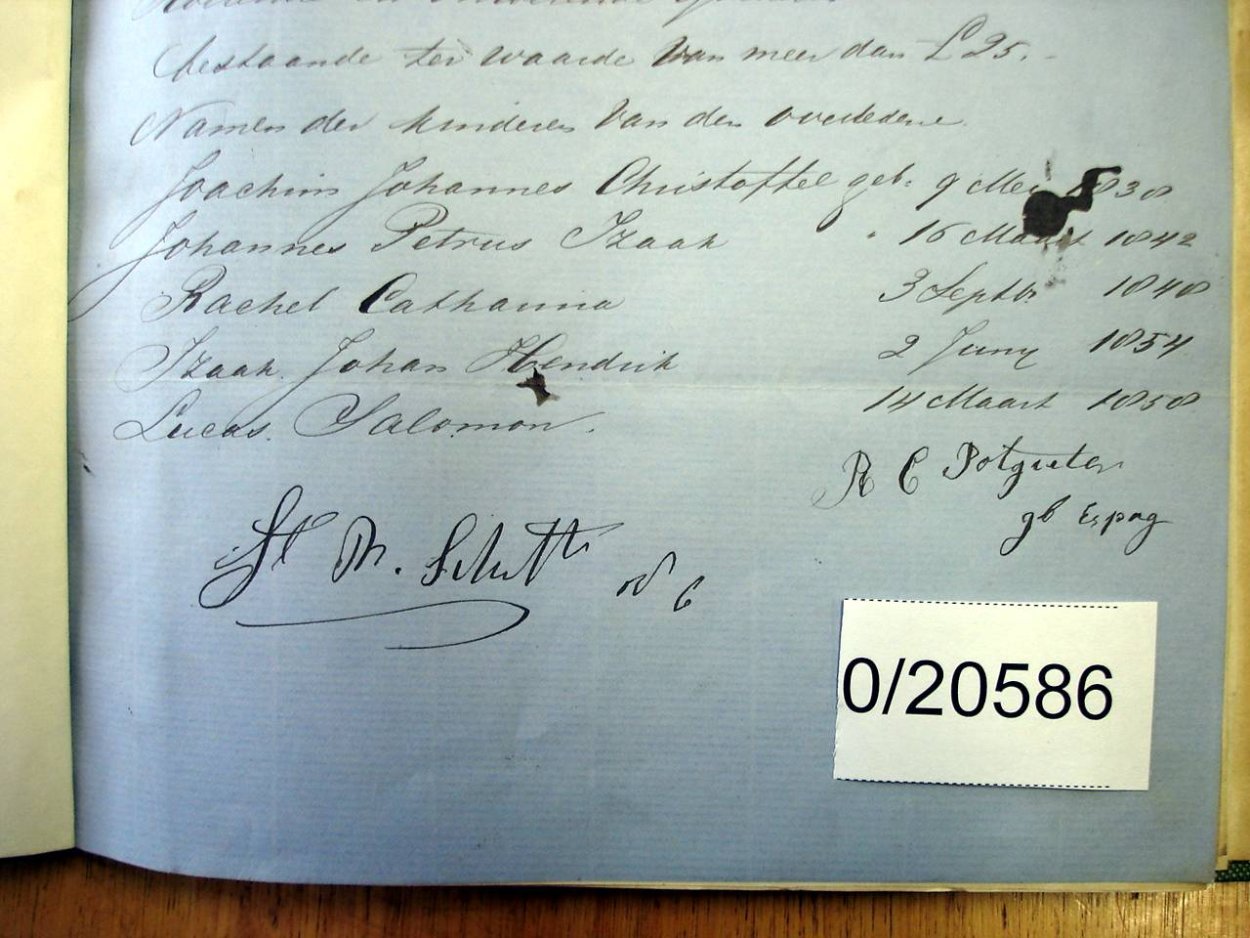 bestaande ter waarde van meer dan £25.-
Namen der kinderen van den overledene
Joachim Johannes Christoffel geb. 9 Mei 1838
Johannes Petrus Izaak " 16 Maart 1842
Rachel Catharina 3 Septbr 1848
Izaak Johan Hendrik 2 Juny 1854
Lucas Salomon. 14 Maart 1858
R C Potgieter
gb Espag
0/20586